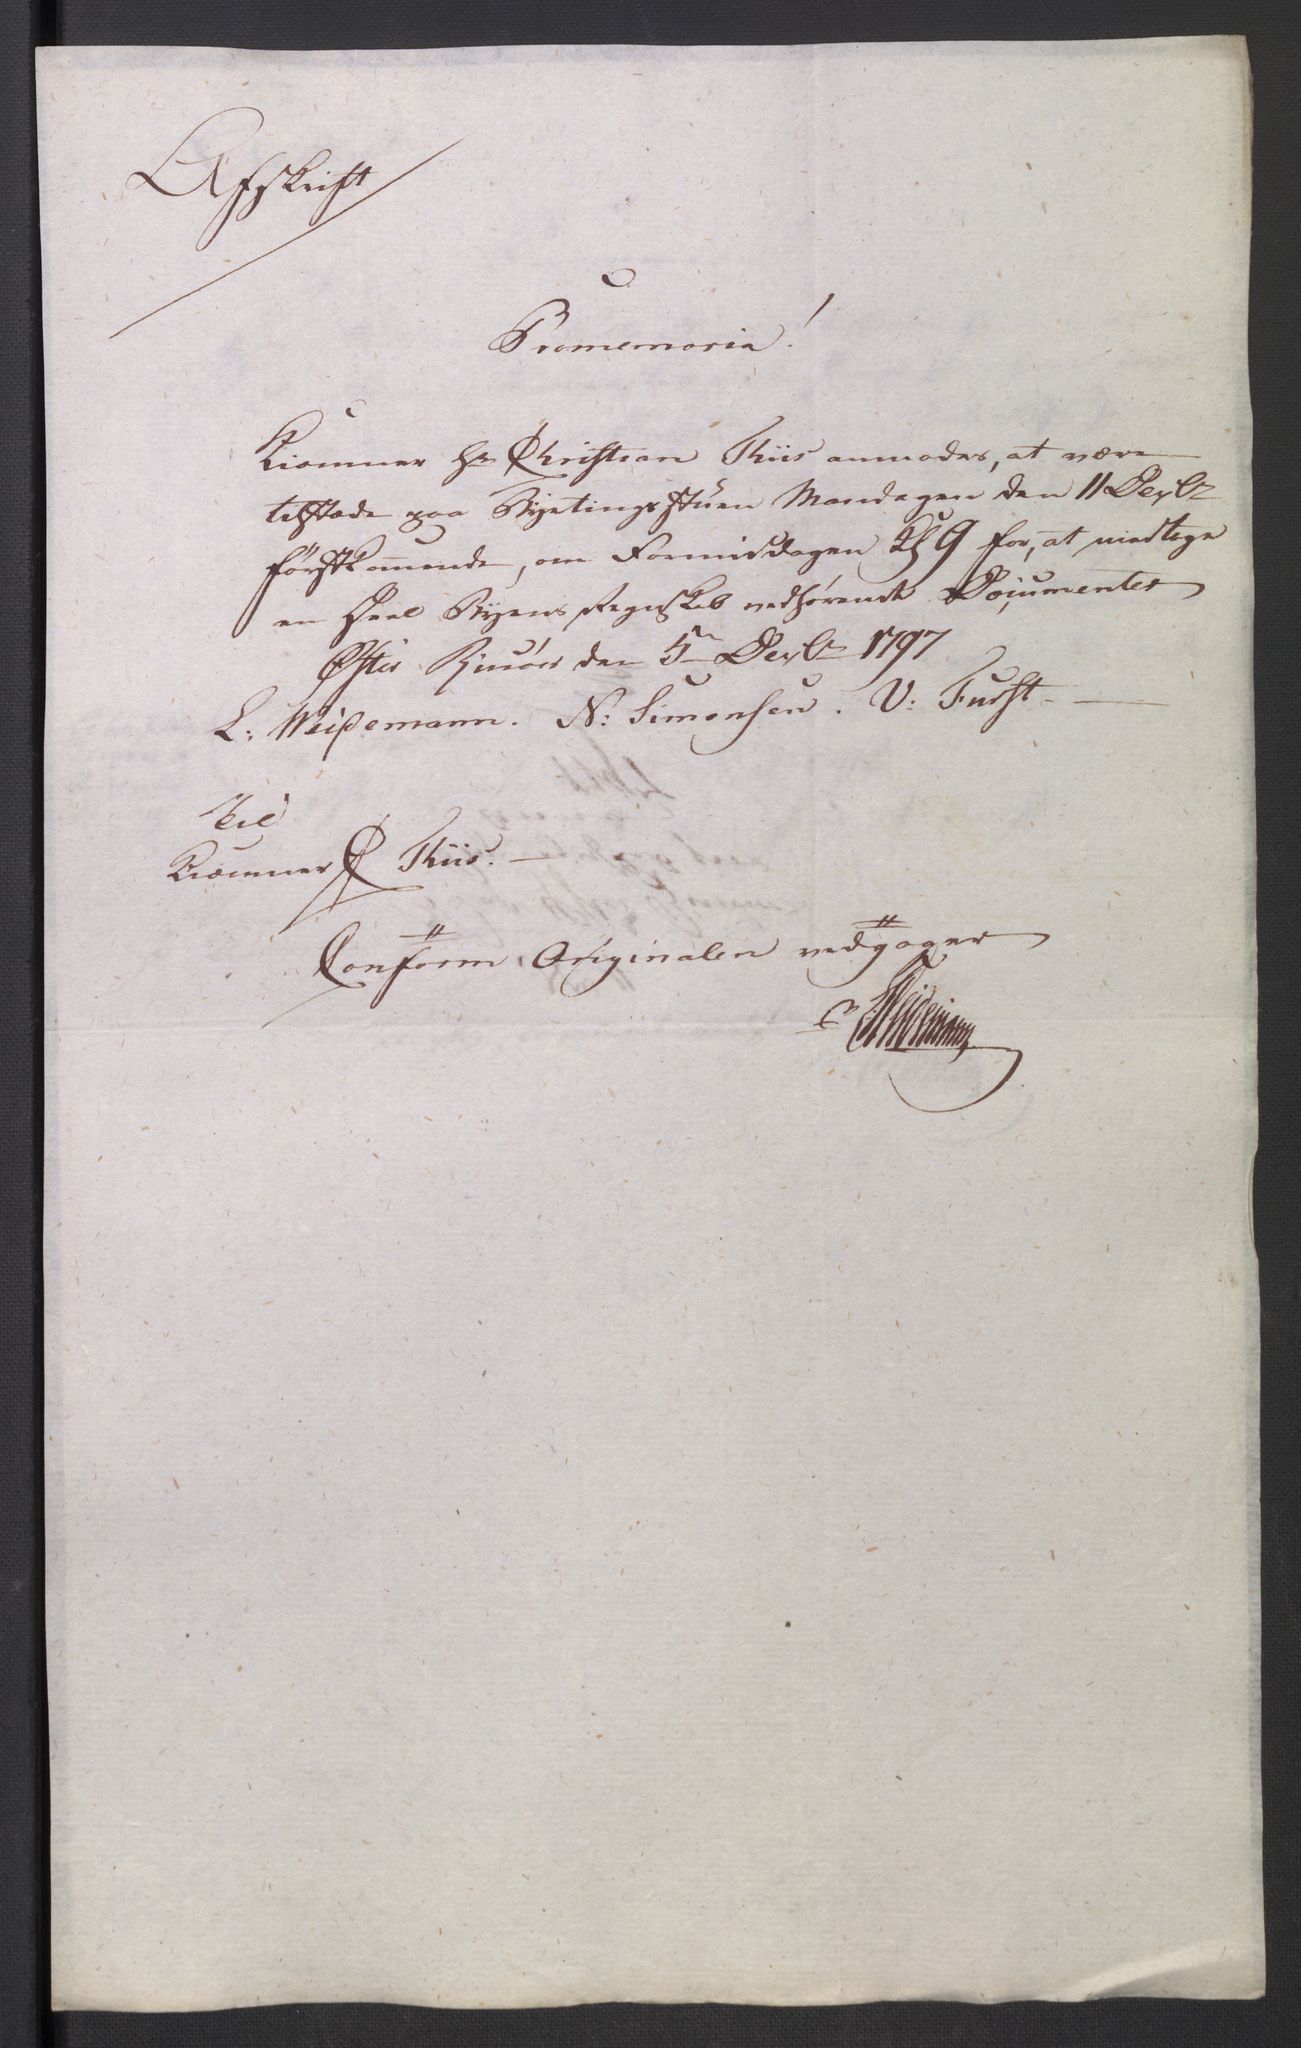 Afskrift
Promemoria!
Kræmmer Hr Christian Thiis anmodes, at være
tilstæde paa Byetingsstuen Mandagen den 11 Decbr
førstkom̅ende, om Formiddagen Kl 9 for, at modtage
en Deel Byens Regnskab vedhørende Documenter
Øster Riisøer den 5te Decbr 1797
L: Weisemann. N: Simonsen. V: Furst.
Til
Kræmmer C Thiis.
Conform Originalen vedgaaer
Weisemann